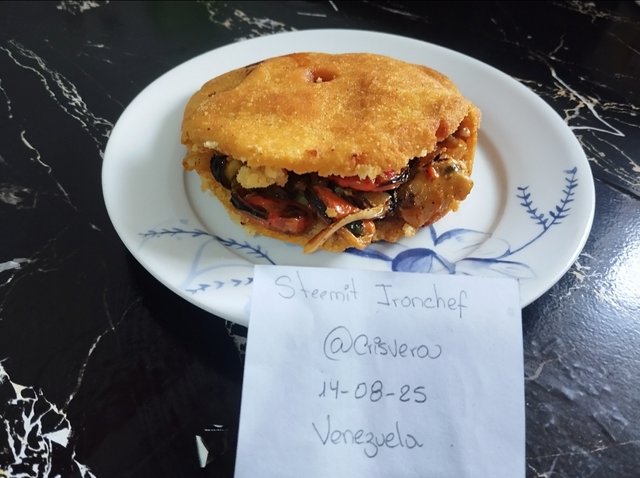 Steemit Ironchef
@Crisvera
14-08-25
Venezuela